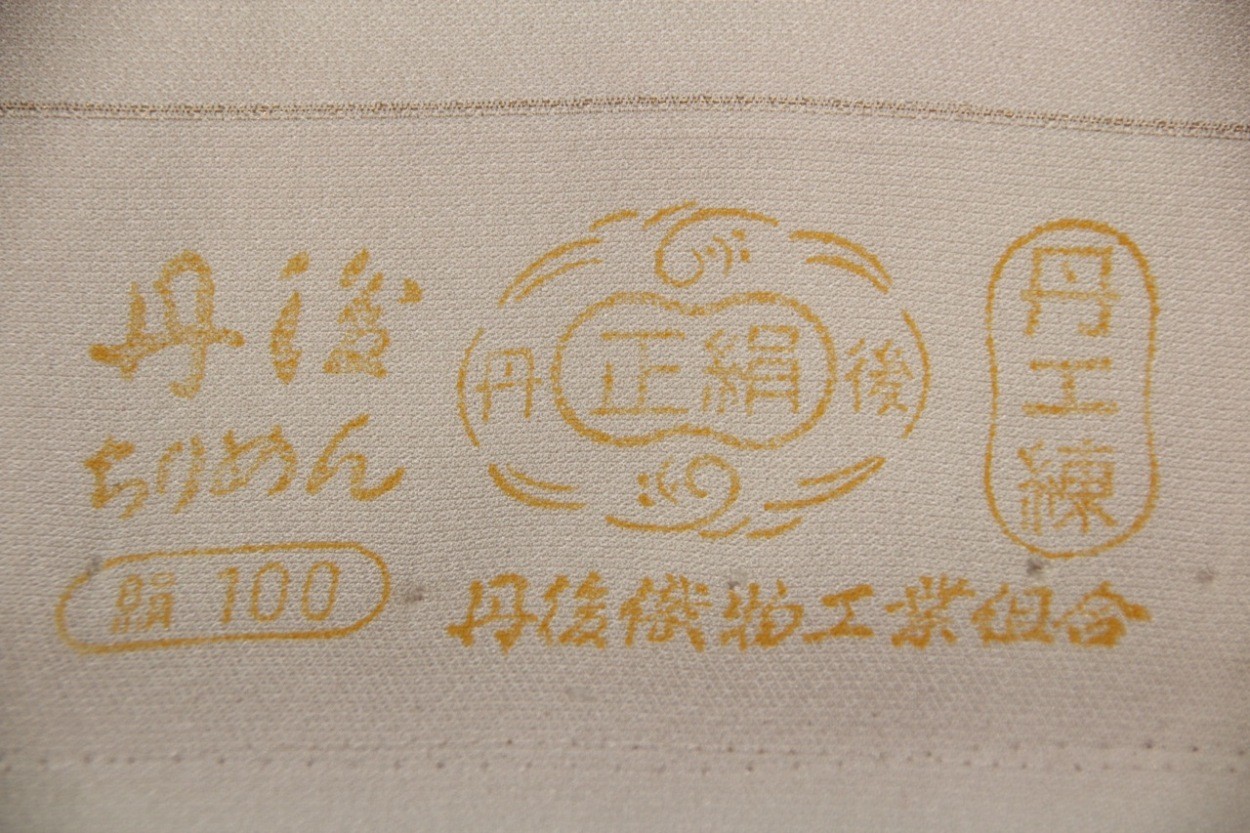 丹後
ちりめん
絹 100
丹 正絹 後
丹工練
丹後織物工業組合